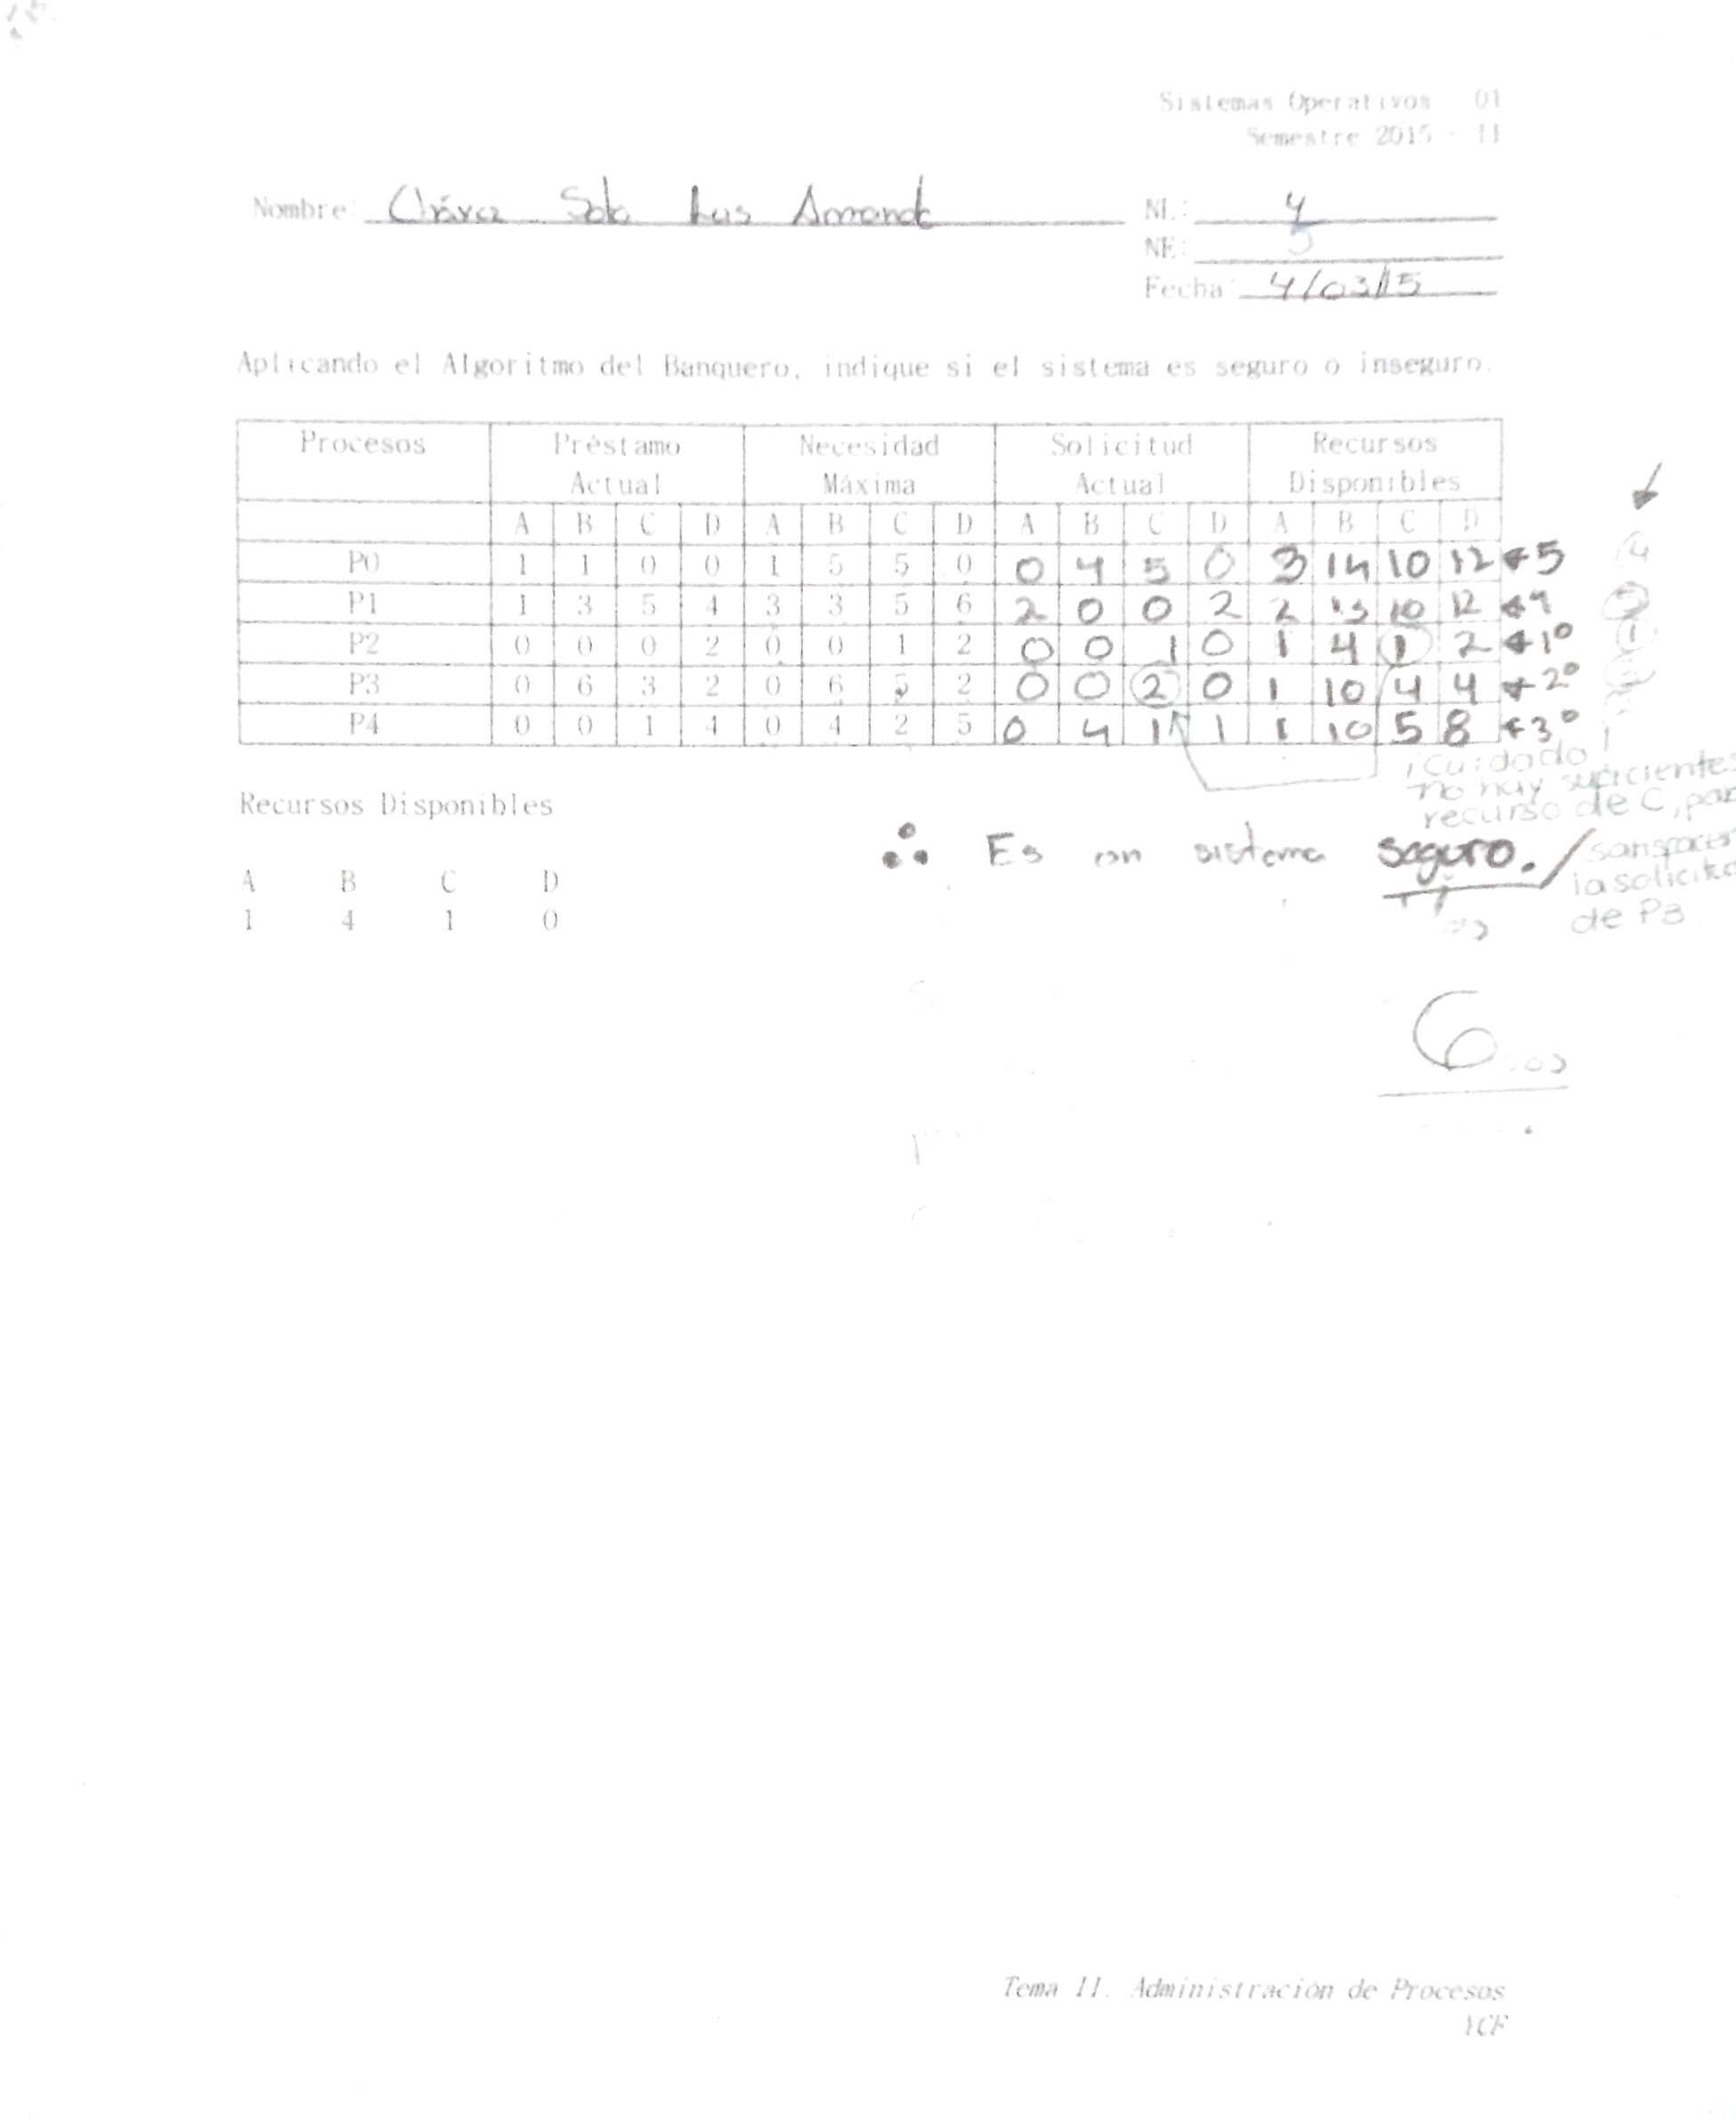 Sistemas Operativos 01
Semestre 2015 - II
Nombre: Soto Luis Armando NL: 4
NE: 5
Fecha: 4/03/15
Aplicando el Algoritmo del Banquero, indique si el sistema es seguro o inseguro.
Procesos Préstamo Actual Necesidad Máxima Solicitud Actual Recursos Disponibles
A B C D A B C D A B C D A B C D
P0 1 1 0 0 1 5 5 0 0 4 5 0 3 14 10 12 5 4
P1 1 3 5 4 3 3 5 6 2 0 0 2 2 13 10 12 4
P2 0 0 0 2 0 0 1 2 0 0 1 0 1 4 1 2 1° 1
P3 0 6 3 2 0 6 5 2 0 0 2 0 1 10 4 4 2°
P4 0 0 1 4 0 4 2 5 0 4 1 1 1 10 5 8 3°
¡Cuidado!
no hay suficientes
recurso de C, par
Recursos Disponibles
∴ Es un sistema seguro.
la solicitud
de P3
A B C D
1 4 1 0
6
Tema II. Administración de Procesos
YCF